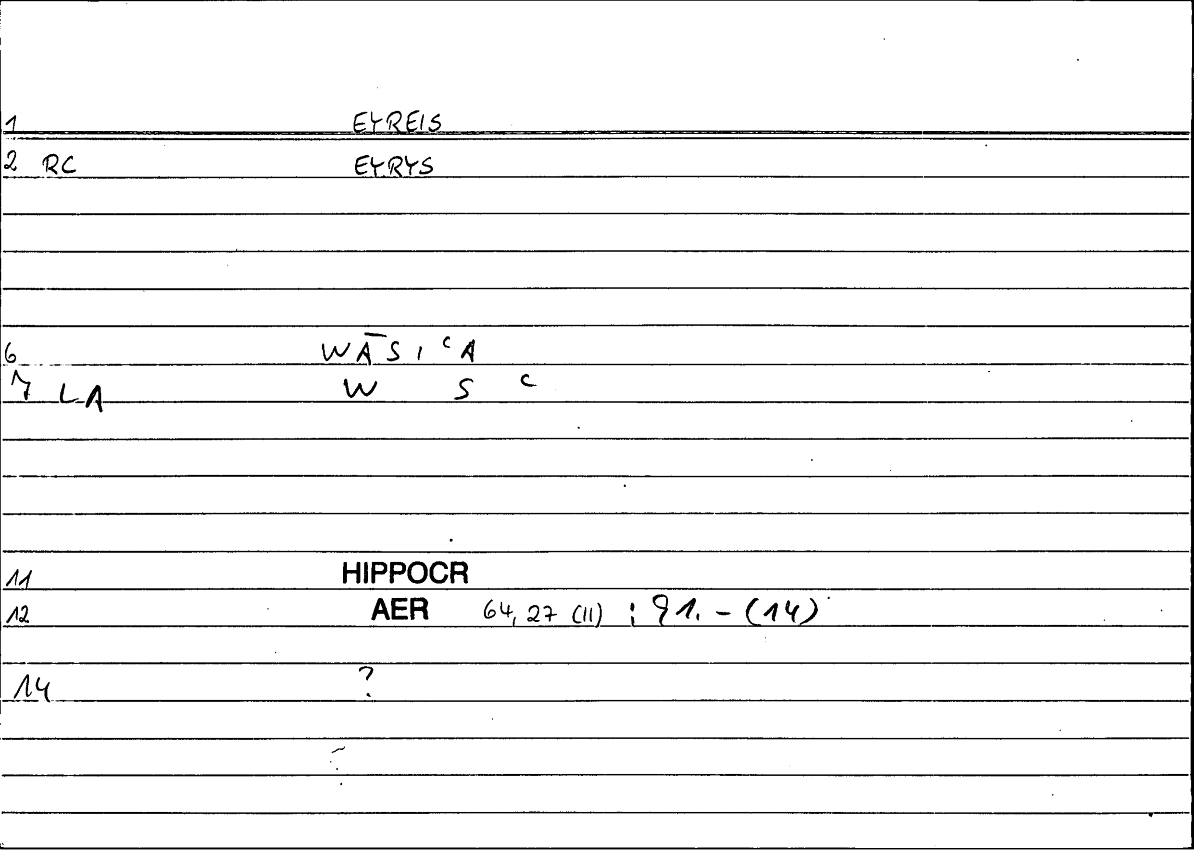 1 EYREIS
2 RC EYRYS
6 WĀSIᶜA
7 LA W S ᶜ
11 HIPPOCR
12 AER 64,27 (11) ; 91. - (14)
14 ?